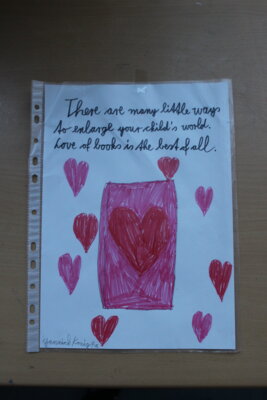 There are many little ways
to enlarge your child's world.
Love of books is the best of all.